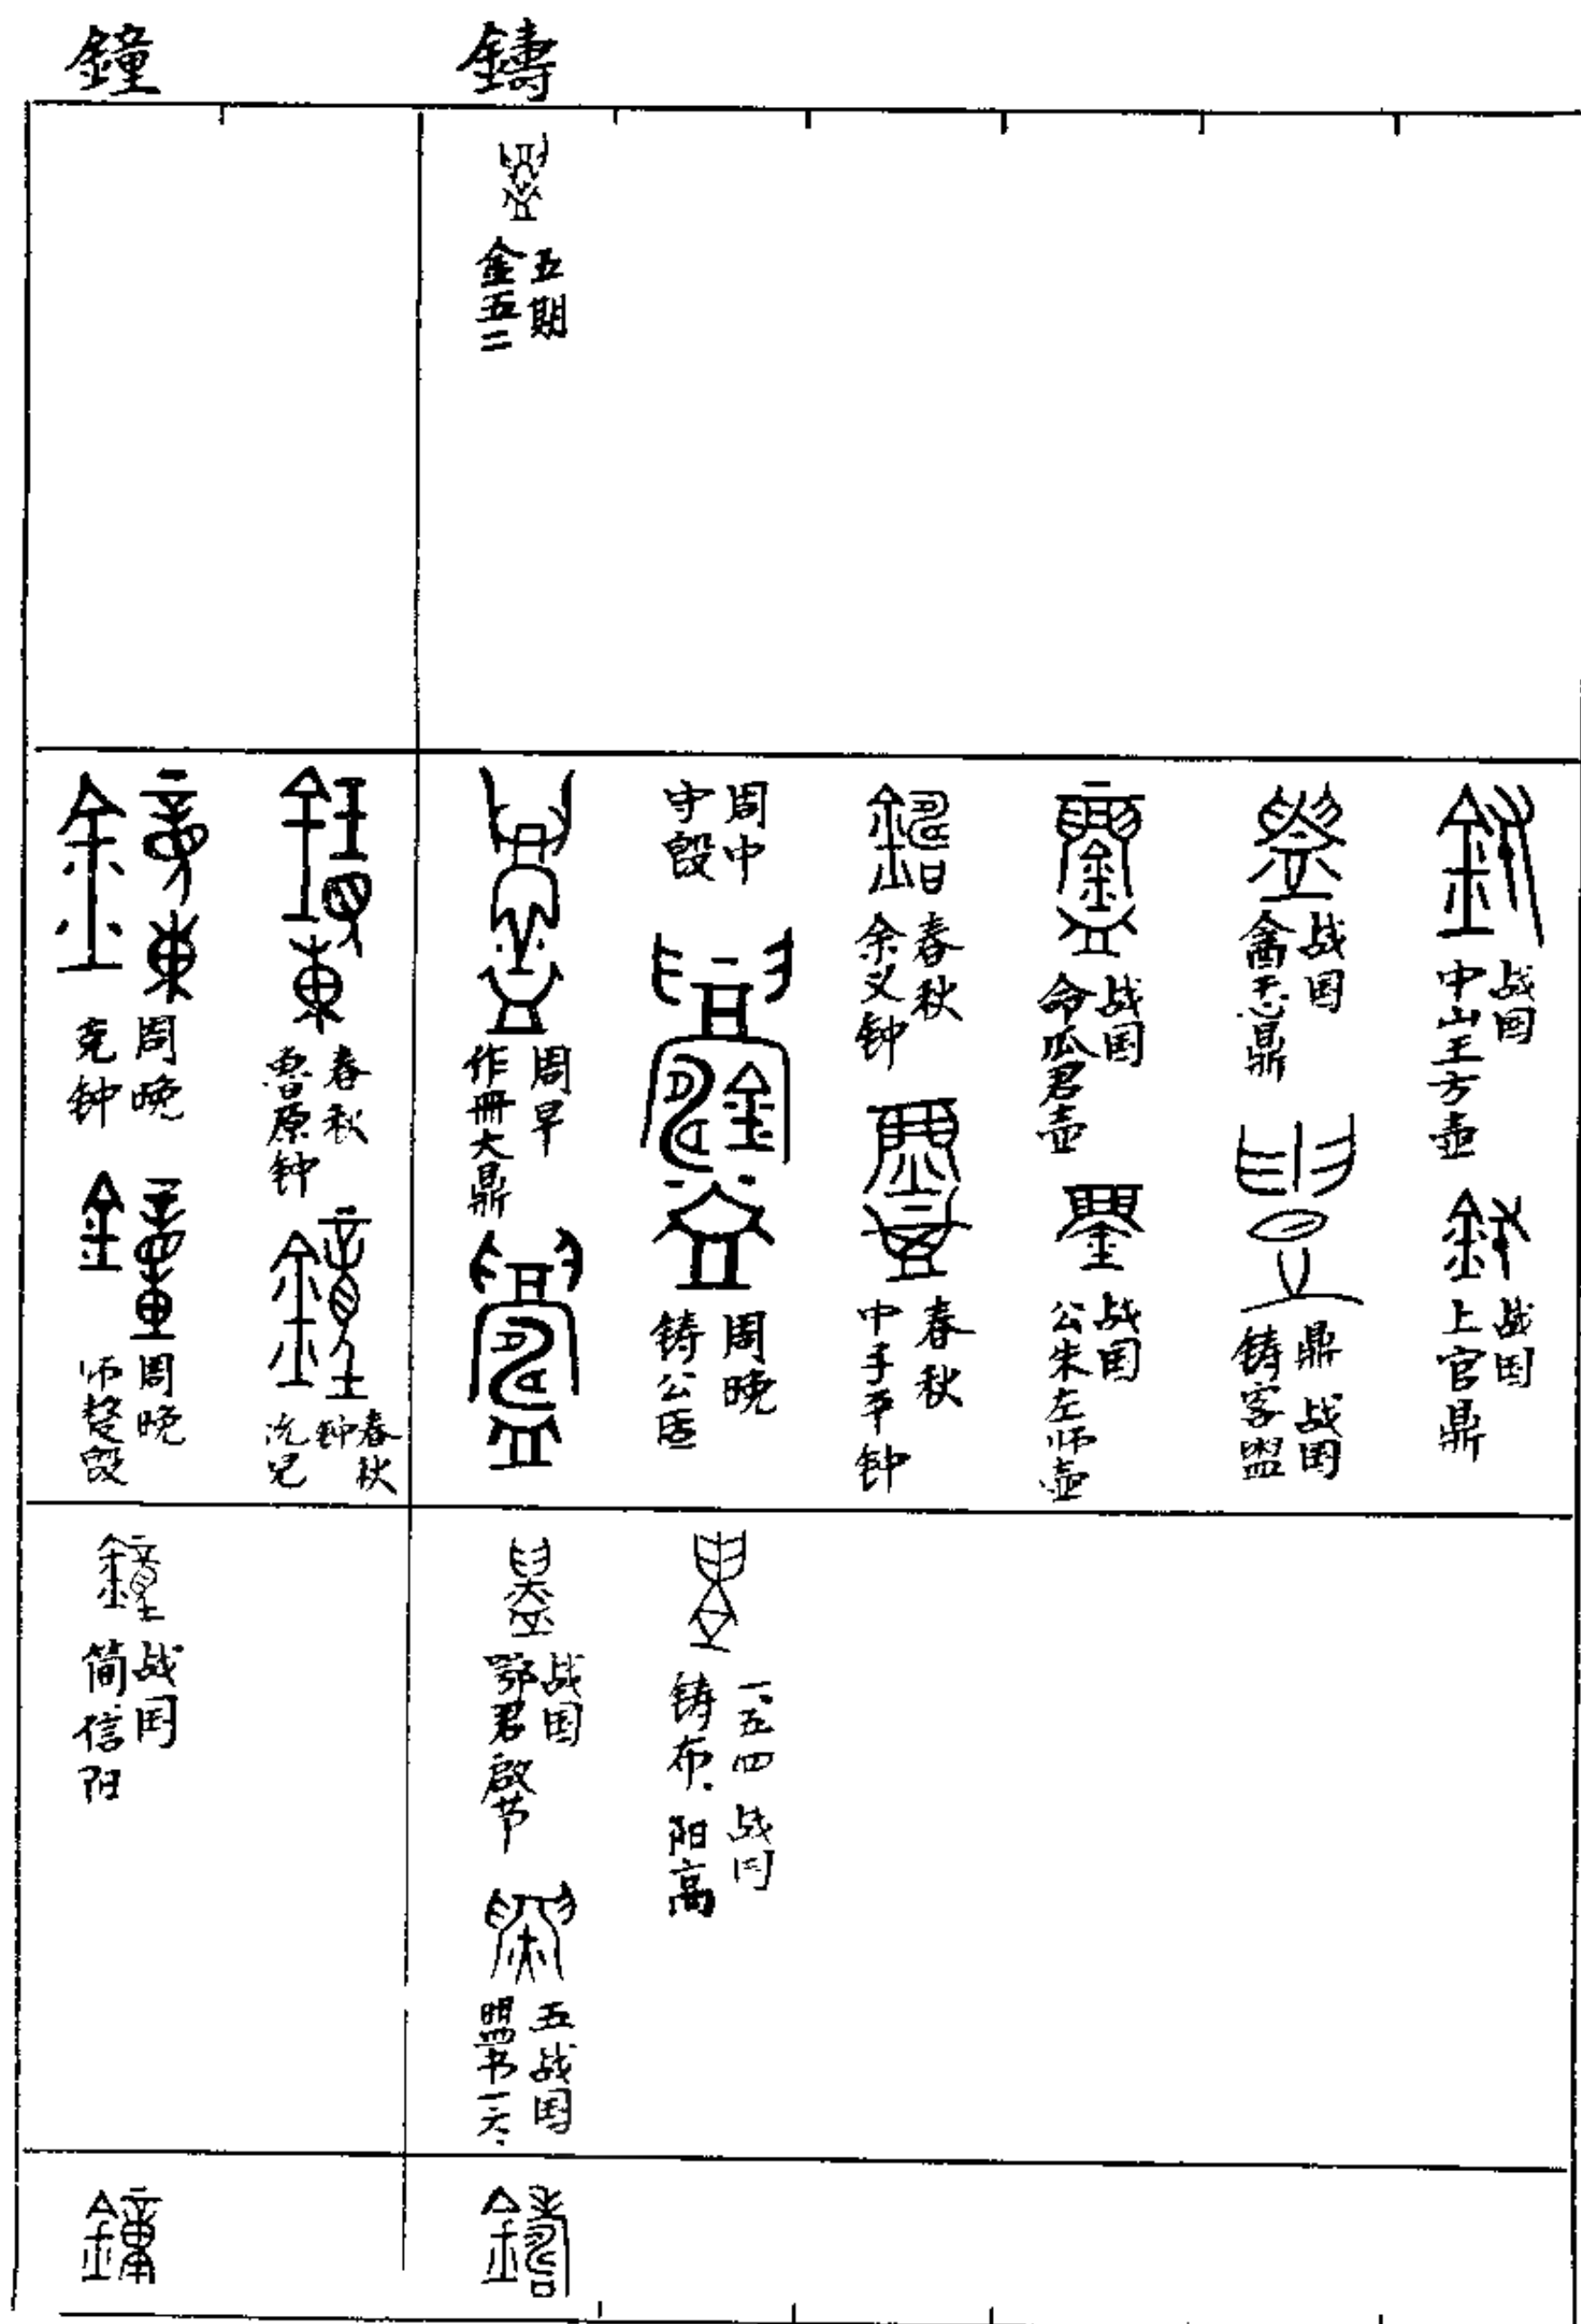 鐘
鑄
五期
金五三
周晚
克钟
周晚
师𣄰𣪘
春秋
鲁原钟
春秋
沇兒钟
周早
作册大鼎
周中
守𣪘
周晚
铸公匜
春秋
余义钟
春秋
中子平钟
战国
命瓜君壶
战国
公朱左师壶
战国
酓忎鼎
战国
铸客盥鼎
战国
中山王方壶
战国
上官鼎
战国
简信阳
战国
鄂君啟节
战国
盟书一六·五
战国
铸布·阳高一·五四
鐘
鑄